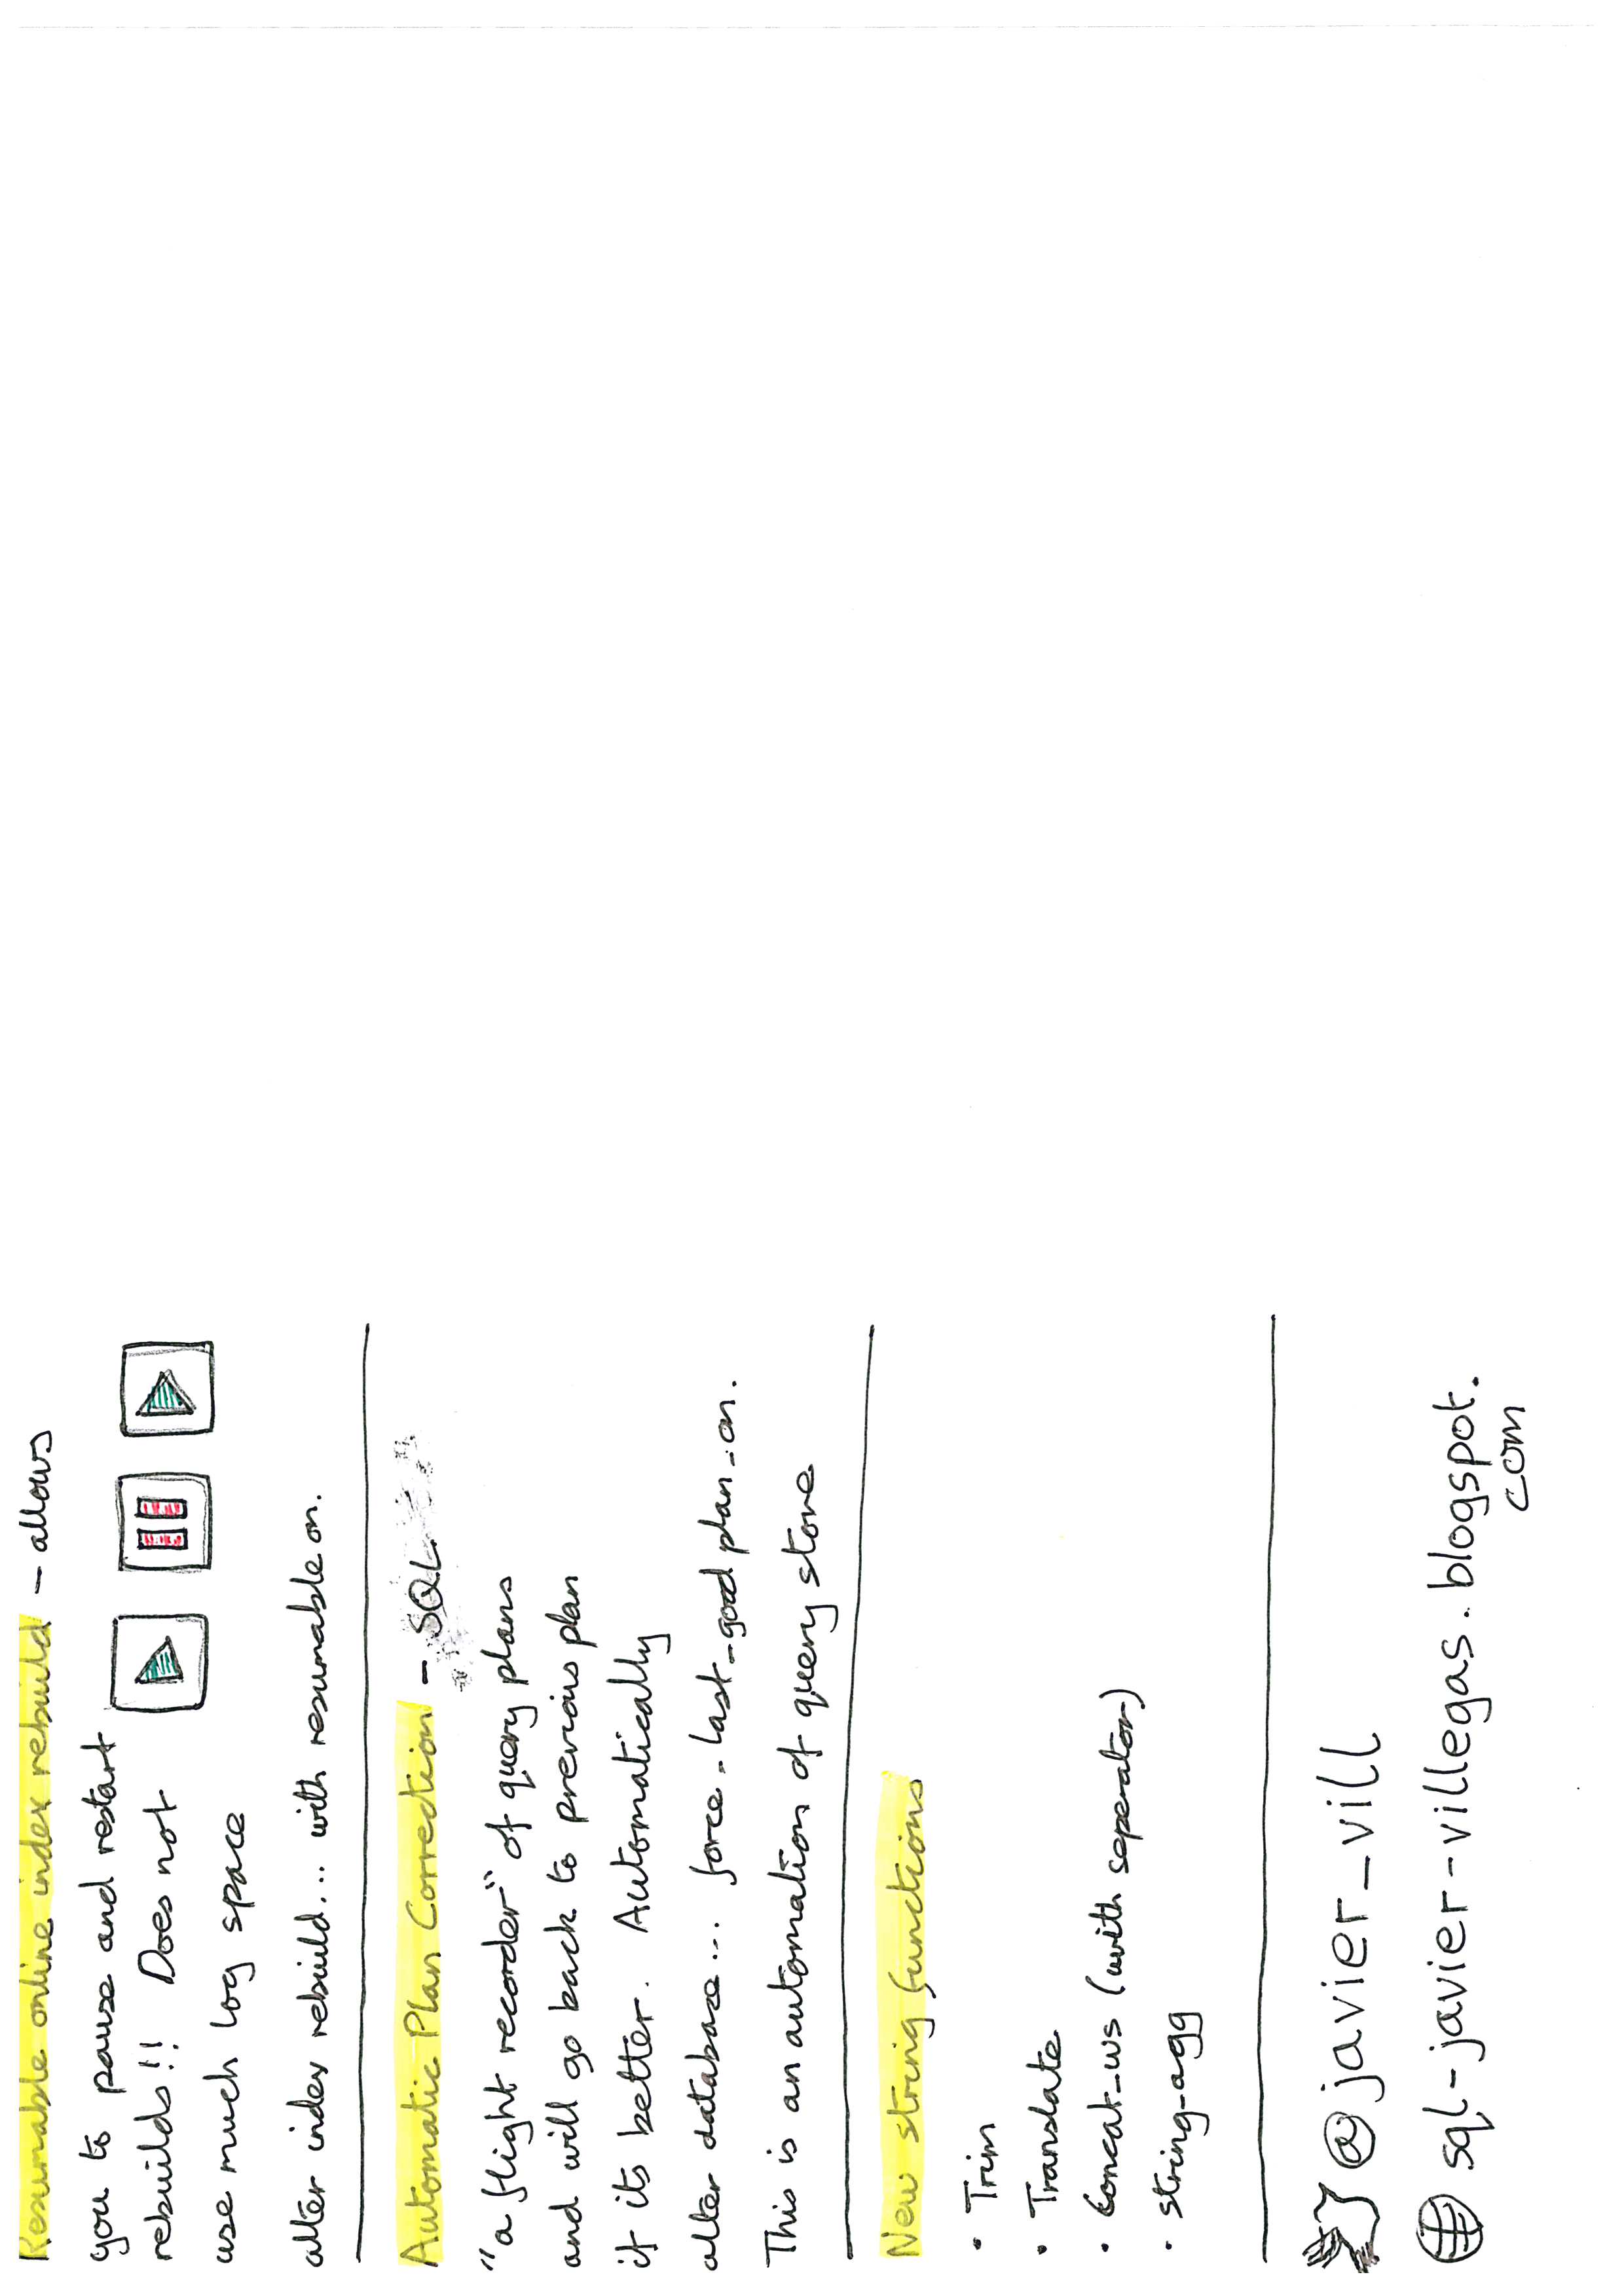 Resumable online index rebuild - allows
you to pause and restart
rebuilds!! Does not
use much log space
alter index rebuild... with resumable on.
Automatic Plan Correction - SQL
"a flight recorder" of query plans
and will go back to previous plan
if its better. Automatically
alter database... force_last_good plan_on.
This is an automation of query store
New string functions
• Trim
• Translate
• Concat_ws (with seperator)
• string_agg
@javier_vill
sql-javier-villegas.blogspot.
com